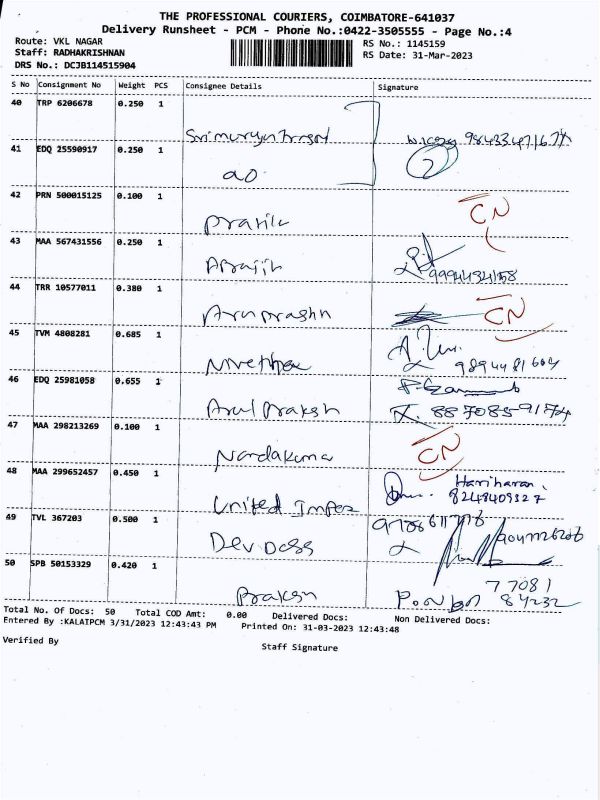 THE PROFESSIONAL COURIERS, COIMBATORE-641037
Delivery Runsheet - PCM - Phone No.:0422-3505555 - Page No.:4
Route: VKL NAGAR
Staff: RADHAKRISHNAN
DRS No.: DCJB114515904
RS No.: 1145159
RS Date: 31-Mar-2023
S No Consignment No Weight PCS Consignee Details Signature
40 TRP 6206678 0.250 1
41 EDQ 25590917 0.250 1 do 2
42 PRN 500015125 0.100 1 CN
43 MAA 567431556 0.250 1
44 TRR 10577011 0.380 1 Arun prashn CN
45 TVM 4808281 0.685 1
46 EDQ 25981058 0.655 1 Arul praksh
47 MAA 298213269 0.100 1 Nandakuma CN
48 MAA 299652457 0.450 1 United Impex Hariharan.
8248409327
49 TVL 367203 0.500 1 Dev Doss
50 SPB 50153329 0.420 1 Praksh 77081
84232
Total No. Of Docs: 50 Total COD Amt: 0.00 Delivered Docs: Non Delivered Docs:
Entered By :KALAIPCM 3/31/2023 12:43:43 PM Printed On: 31-03-2023 12:43:48
Verified By Staff Signature